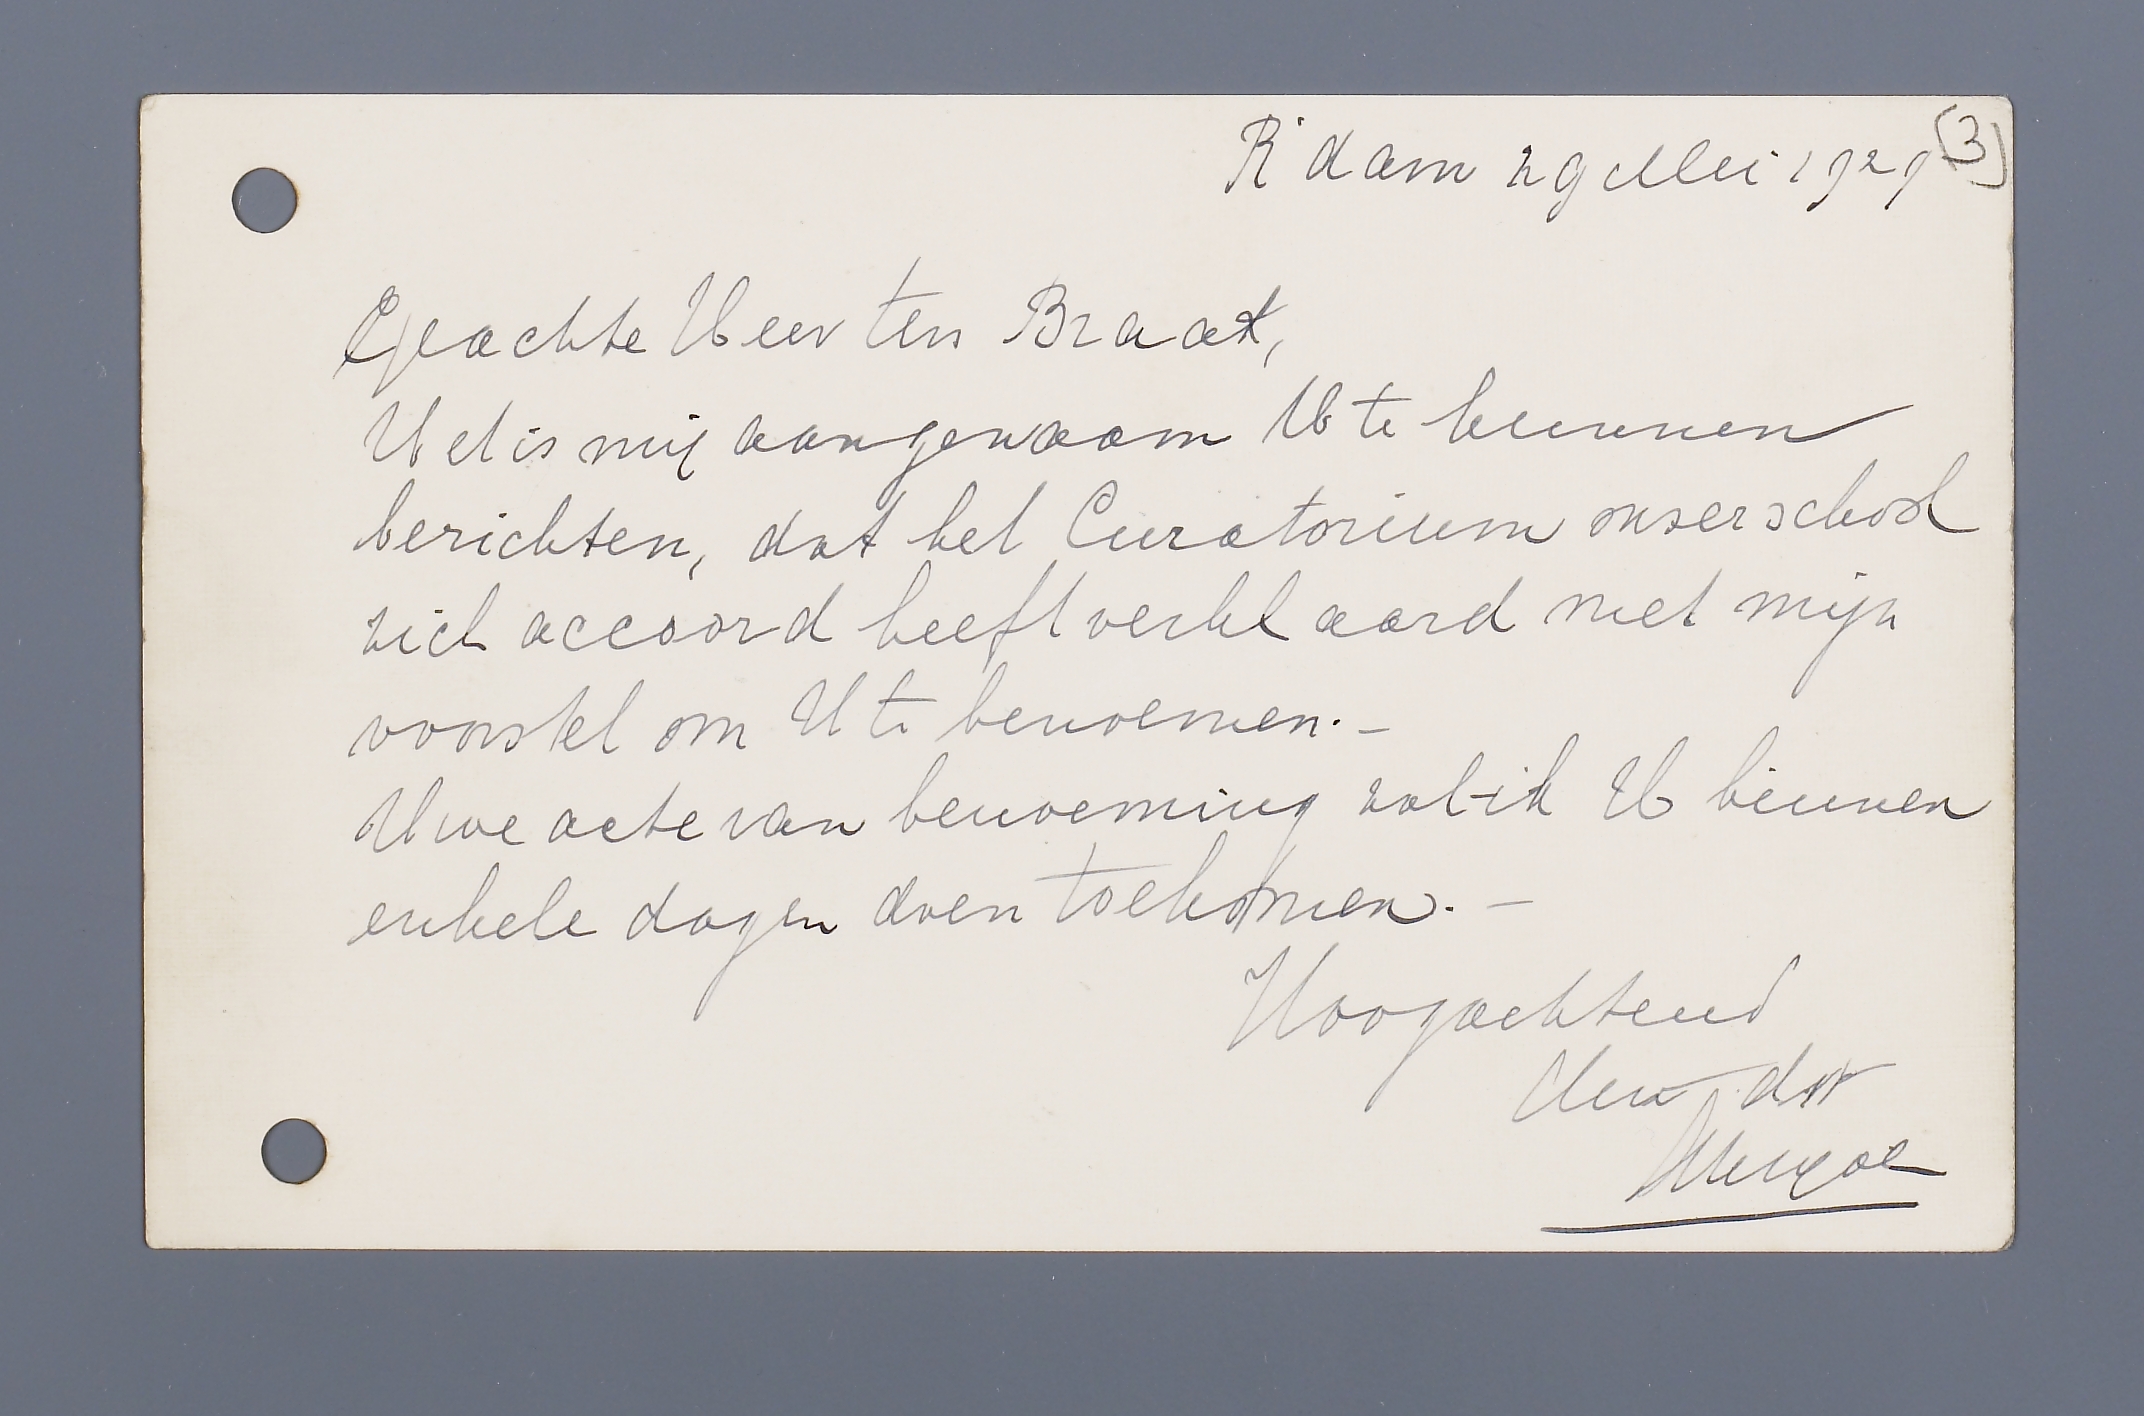 R'dam 29 Mei 1929
(3)
Geachte Heer ten Braak,
Het is mij aangenaam U te kunnen
berichten, dat het Curatorium onzer school
zich accoord heeft verklaard met mijn
voorstel om U te benoemen. –
Uwe acte van benoeming zal ik U binnen
enkele dagen doen toekomen. –
Hoogachtend
Uw dr